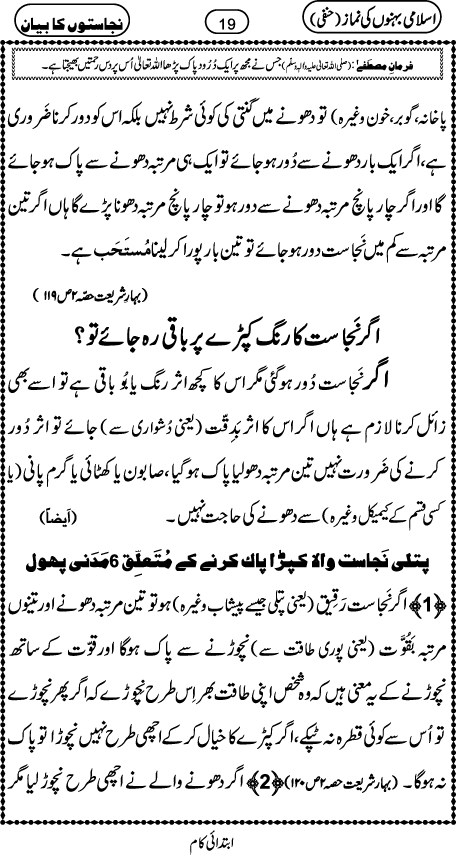 اسلامی بہنوں کی نماز (حنفی)
19
نجاستوں کا بیان
فرمانِ مصطفےٰ: (صلی اللہ تعالیٰ علیہ والہٖ وسلّم) جس نے مجھ پر ایک دُرُود پاک پڑھا اللہ تعالیٰ اُس پر دس رحمتیں بھیجتا ہے۔
پاخانہ، گوبر، خون وغیرہ) تو دھونے میں گنتی کی کوئی شرط نہیں بلکہ اس کو دور کرنا ضَروری
ہے، اگر ایک بار دھونے سے دُور ہو جائے تو ایک ہی مرتبہ دھونے سے پاک ہو جائے
گا اور اگر چار پانچ مرتبہ دھونے سے دور ہو تو چار پانچ مرتبہ دھونا پڑے گا ہاں اگر تین
مرتبہ سے کم میں نَجاست دور ہو جائے تو تین بار پورا کر لینا مُستَحَب ہے۔
(بہارِ شریعت حصّہ ۲ ص ۱۱۹)
اگر نَجاست کا رنگ کپڑے پر باقی رہ جائے تو؟
اگر نَجاست دُور ہو گئی مگر اس کا کچھ اثر رنگ یا بُو باقی ہے تو اسے بھی
زائل کرنا لازم ہے ہاں اگر اس کا اثر بدِقّت (یعنی دُشواری سے) جائے تو اثر دُور
کرنے کی ضَرورت نہیں تین مرتبہ دھو لیا پاک ہو گیا، صابون یا کھٹائی یا گرم پانی (یا
کسی قسم کے کیمیکل وغیرہ) سے دھونے کی حاجت نہیں۔ (اَیضاً)
پتلی نَجاست والا کپڑا پاک کرنے کے مُتَعلِّق 6 مَدَنی پھول
﴿1﴾ اگر نَجاست رَقِیق (یعنی پتلی جیسے پیشاب وغیرہ) ہو تو تین مرتبہ دھونے اور تینوں
مرتبہ بِقُوَّت (یعنی پوری طاقت سے) نچوڑنے سے پاک ہو گا اور قوّت کے ساتھ
نچوڑنے کے یہ معنٰی ہیں کہ وہ شخص اپنی طاقت بھر اِس طرح نِچوڑے کہ اگر پھر نچوڑے
تو اُس سے کوئی قطرہ نہ ٹپکے، اگر کپڑے کا خیال کر کے اچھی طرح نہیں نچوڑا تو پاک
نہ ہو گا۔ (بہارِ شریعت حصہ ۲ ص ۱۲۰) ﴿2﴾ اگر دھونے والے نے اچھی طرح نچوڑ لیا مگر
ابتدائی کام